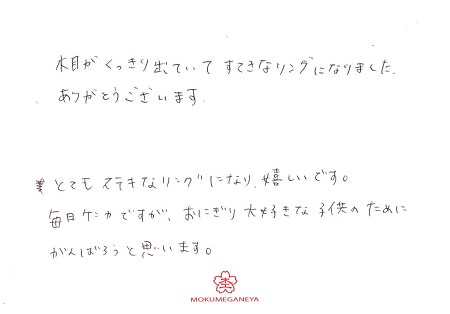 木目がくっきり出ていて すてきなリングになりました.
ありがとうございます.
とてもステキなリングになり、嬉しいです。
毎日ケンカですが、おにぎり大好きな子供のために
がんばろうと思います。
MOKUMEGANEYA